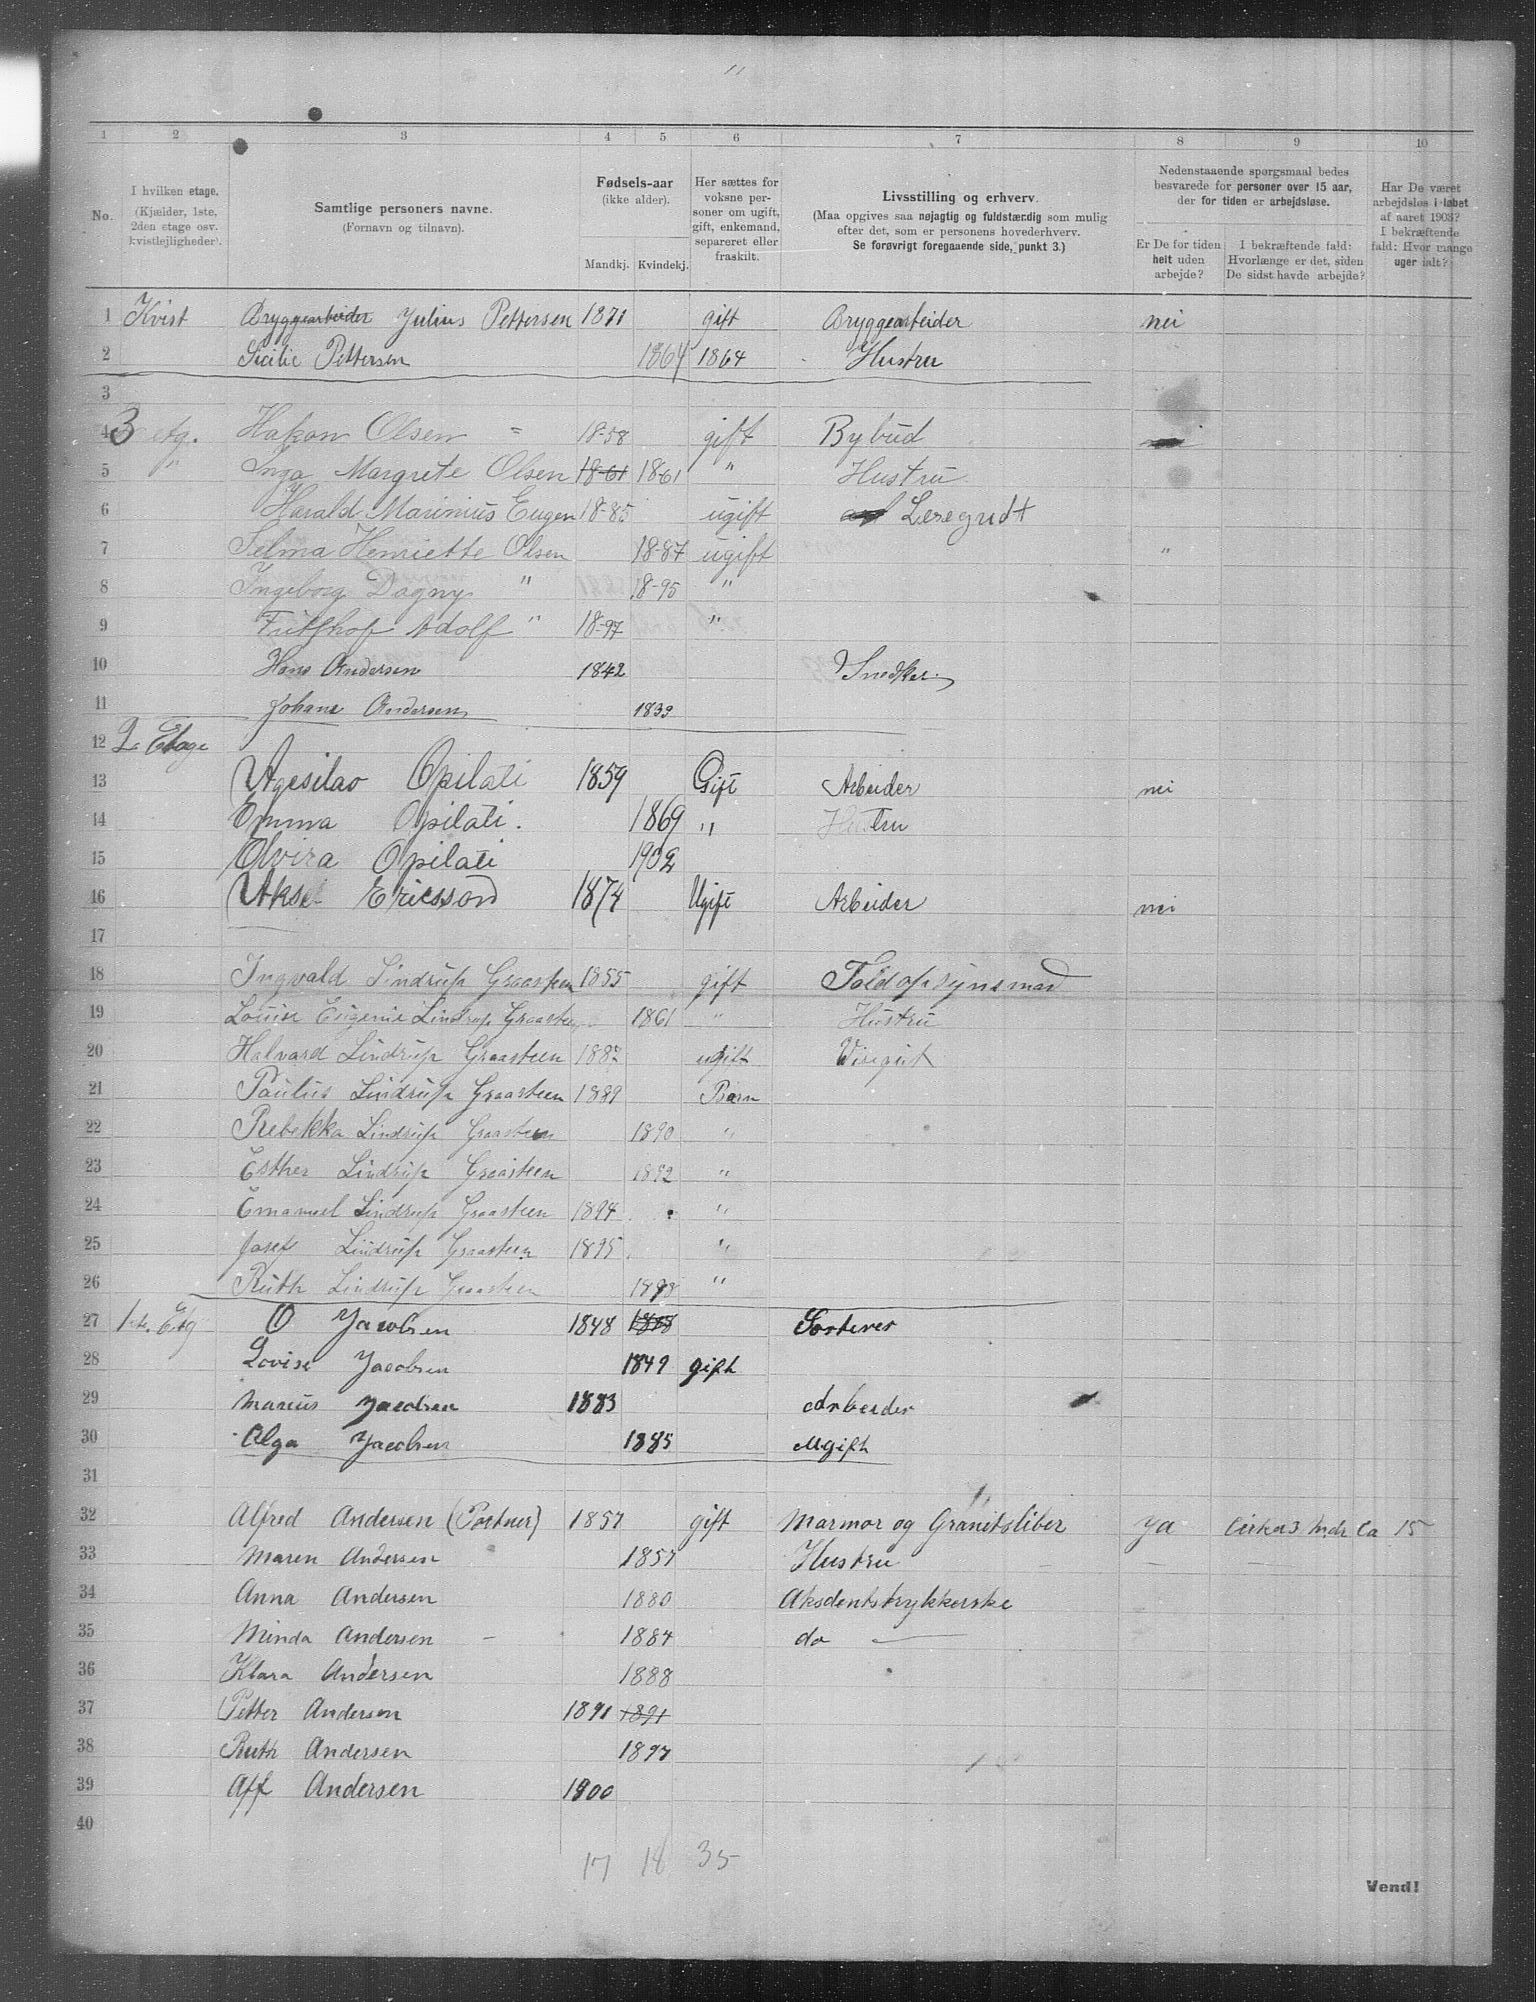 11
1 2 3 4 5 6 7 8 9 10
No. I hvilken etage. (Kjælder, 1ste, 2den etage osv. kvistlejligheder). Samtlige personers navne. (Fornavn og tilnavn). Fødsels-aar (ikke alder). Mandkj. Kvindekj. Her sættes for voksne personer om ugift, gift, enkemand, separeret eller fraskilt. Livsstilling og erhverv. (Maa opgives saa nøjagtig og fuldstærdig som mulig efter det, som er personens hovederhverv. Se forøvrigt foregaaende side, punkt 3.) Nedenstaaende spørgsmaal bedes besvarede for personer over 15 aar, der for tiden er arbejdsløse. Er De for tiden heit uden arbejde? I bekræftende fald: Hvorlænge er det, siden De sidst havde arbejde? Har De været arbejdsløs i løbet af aaret 1903? I bekræftende fald: Hvor mange uger ialt?
1 Kvist Bryggearbeider Julius Pettersen 1871 gift Bryggearbeider nei
2 Sicilie Pettersen 1864 1864 Hustru
3
4 3 etg. Hakon Olsen 1858 gift Bybud nei
5 " Inga Margrete Olsen 1861 1861 " Hustru
6 Harald Marinius Eugen 1885 ugift Leregudt
7 Selma Henriette Olsen 1887 ugift "
8 Ingeborg Dagny " 1895 "
9 Frithjhof Adolf " 1897 "
10 Hans Andersen 1842 Snedker
11 Johane Andersen 1839
12 2. Etage
13 Agesilao Opilati 1859 Gift Arbeider nei
14 Emma Opilati. 1869 " Hustru
15 Elvira Opilati 1902
16 Aksel Ericsson 1874 Ugift Arbeider nei
17
18 Ingvald Lindrup Graasteen 1855 gift Toldopsynsmand
19 Louise Eugenie Lindrup Graasteen 1861 " Hustru
20 Halvard Lindrup Graasteen 1887 ugift Visegut
21 Paulus Lindrup Graasteen 1889 Barn
22 Rebekka Lindrup Graasteen 1890 "
23 Esther Lindrup Graasteen 1892 "
24 Emanuel Lindrup Graasteen 1894 "
25 Josef Lindrup Graasteen 1895 "
26 Ruth Lindrup Graasteen 1898 "
27 1ste. Etg O Jacobsen 1848 Sorterer
28 Lovise Jacobsen 1849 gift
29 Marius Jacobsen 1883 Arbeider
30 Olga Jacobsen 1885 Ugift
31
32 Alfred Andersen (Portner) 1857 gift Marmor og Granitsliber ja Cirka 3 Mdr Ca 15
33 Maren Andersen 1857 Hustru — —
34 Anna Andersen 1880 Aksdentstrykkerske
35 Minda Andersen - 1884 do —
36 Klara Andersen 1888
37 Petter Andersen 1891 1891
38 Ruth Andersen 1897
39 Aff Andersen 1900
40
17 18 35
Vend!